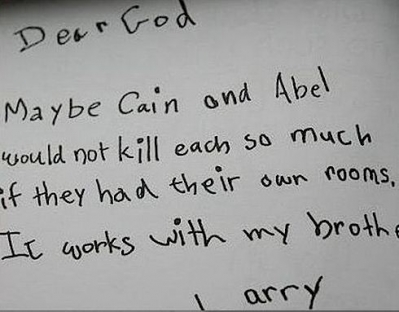 Dear God
Maybe Cain and Abel
would not kill each so much
if they had their own rooms.
It works with my brothe
Larry